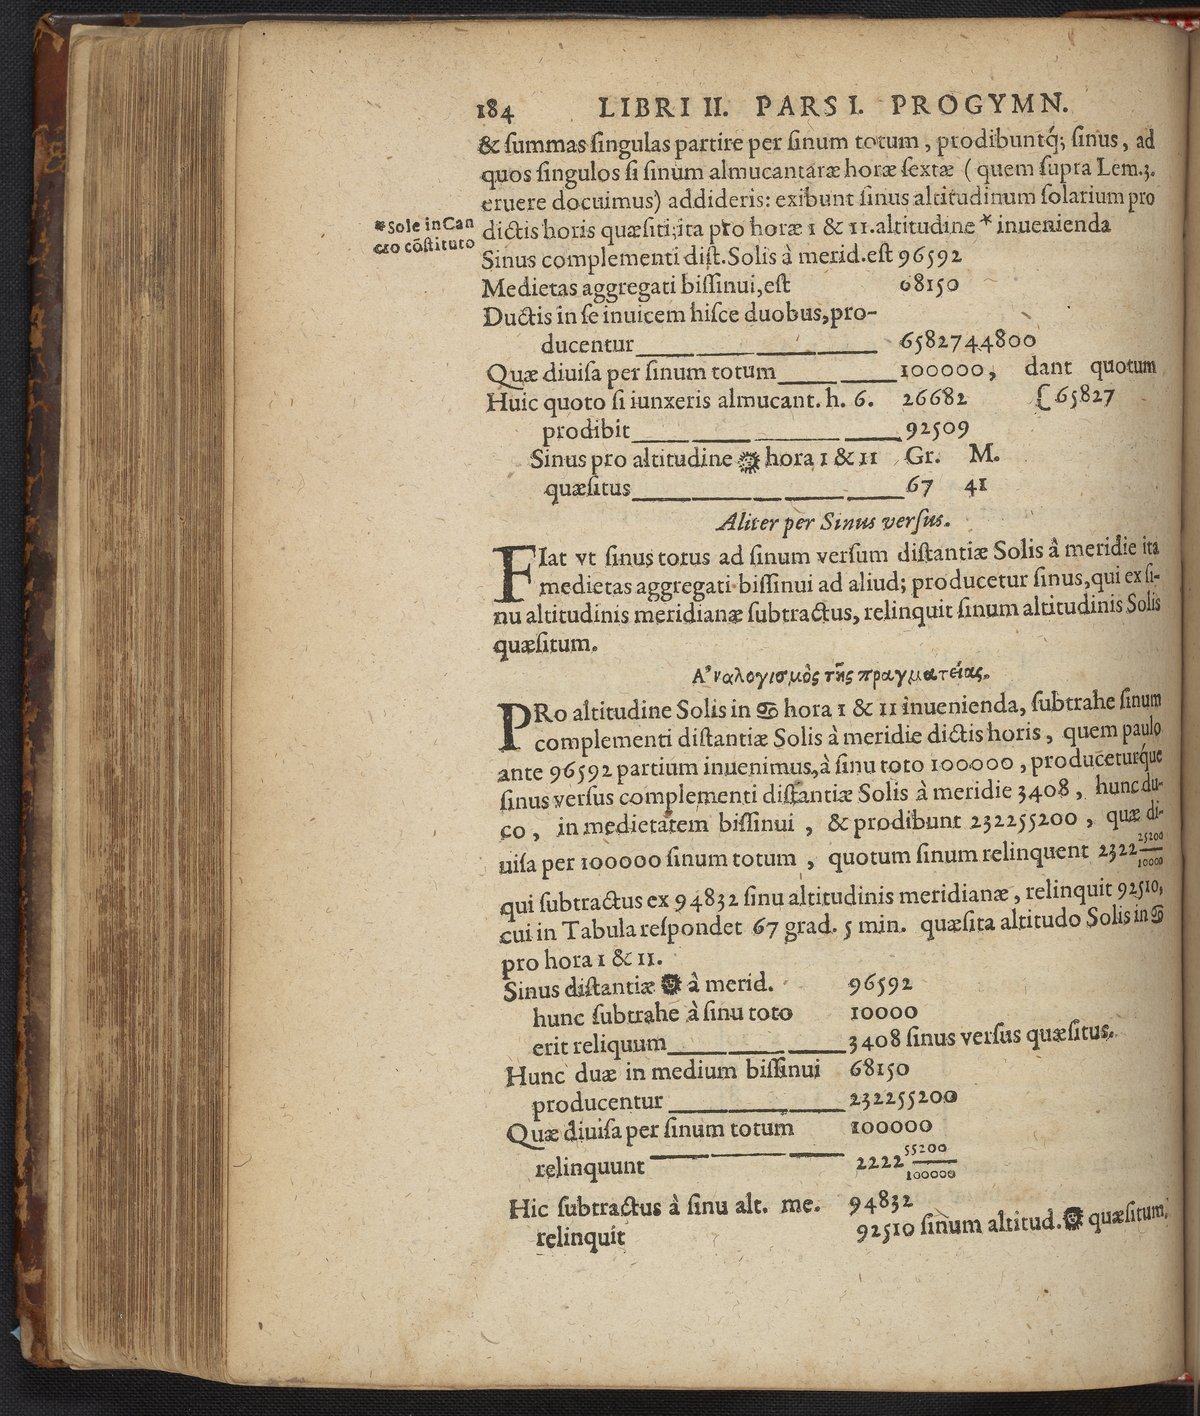 184 LIBRI II. PARS I. PROGYMN.
& ſummas ſingulas partire per ſinum totum, prodibuntq́; ſinus, ad
quos ſingulos ſi ſinum almucantaræ horæ ſextæ (quem ſupra Lem.3.
eruere docuimus) addideris: exibunt ſinus altitudinum ſolarium pro
*Sole in Can
cro cõſtituto
dictis horis quæſiti; ita pro horæ 1 & 11. altitudine * inuenienda
Sinus complementi diſt. Solis à merid. eſt 96592
Medietas aggregati biſſinui, eſt 68150
Ductis in ſe inuicem hiſce duobus, pro-
ducentur 6582744800
Quæ diuiſa per ſinum totum 100000, dant quotum
Huic quoto ſi iunxeris almucant. h. 6. 26682 {65827
prodibit 92509
Sinus pro altitudine ☉ hora 1 & 11 Gr. M.
quæſitus 67 41
Aliter per Sinus verſus.
FIat vt ſinus totus ad ſinum verſum diſtantiæ Solis à meridie ita
medietas aggregati biſſinui ad aliud; producetur ſinus, qui ex ſi-
nu altitudinis meridianæ ſubtractus, relinquit ſinum altitudinis Solis
quæſitum.
Α᾿ναλογισμὸς τῆς πραγματείας.
PRo altitudine Solis in ♋ hora 1 & 11 inuenienda, ſubtrahe ſinum
complementi diſtantiæ Solis à meridie dictis horis, quem paulo
ante 96592 partium inuenimus, à ſinu toto 100000, produceturq́ue
ſinus verſus complementi diſtantiæ Solis à meridie 3408, hunc du-
co, in medietatem biſſinui, & prodibunt 232255200, quæ di-
uiſa per 100000 ſinum totum, quotum ſinum relinquent 2322 25200/10000
qui ſubtractus ex 94832 ſinu altitudinis meridianæ, relinquit 92510,
cui in Tabula reſpondet 67 grad. 5 min. quæſita altitudo Solis in ♋
pro hora 1 & 11.
Sinus diſtantiæ ☉ à merid. 96592
hunc ſubtrahe à ſinu toto 10000
erit reliquum 3408 ſinus verſus quæſitus.
Hunc duæ in medium biſſinui 68150
producentur 232255200
Quæ diuiſa per ſinum totum 100000
relinquunt 2222 55200/100000
Hic ſubtractus à ſinu alt. me. 94832
relinquit 92510 ſinum altitud. ☉ quæſitum,